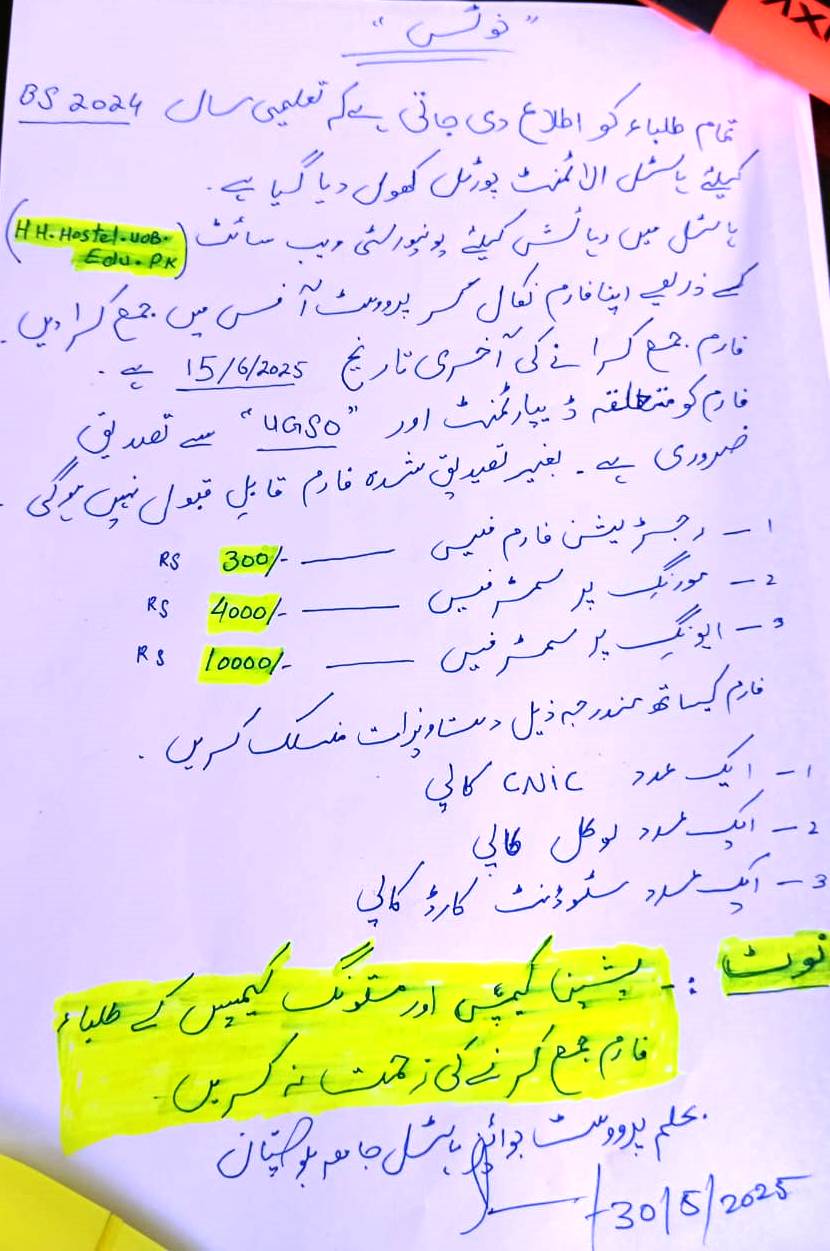 "نوٹس"
تمام طلباء کو اطلاع دی جاتی ہے کہ تعلیمی سال BS 2024
کیلئے ہاسٹل الاٹمنٹ پورٹل کھول دیا گیا ہے۔
ہاسٹل میں رہائش کیلئے یونیورسٹی ویب سائٹ (HH.Hostel.UOB.
Edu.PK)
کے ذریعے اپنا فارم نکال کر پرووسٹ آفس میں جمع کرا دیں۔
فارم جمع کرانے کی آخری تاریخ 15/6/2025 ہے۔
فارم کو متعلقہ ڈیپارٹمنٹ اور "UGSO" سے تصدیق
ضروری ہے۔ بغیر تصدیق شدہ فارم قابلِ قبول نہیں ہوگی۔
1 - رجسٹریشن فارم فیس —— 300/- RS
2 - مورنگ پر سمسٹر فیس —— 4000/- RS
3 - ایونگ پر سمسٹر فیس —— 10000/- RS
فارم کیساتھ مندرجہ ذیل دستاویزات منسلک کریں۔
1 - ایک عدد CNIC کاپی
2 - ایک عدد لوکل کاپی
3 - ایک عدد سٹوڈنٹ کارڈ کاپی
نوٹ :- پشین کیمپس اور مستونگ کیمپس کے طلباء
فارم جمع کرنے کی زحمت نہ کریں۔
بحکم پرووسٹ بوائز ہاسٹل جامعہ بلوچستان
30/5/2025